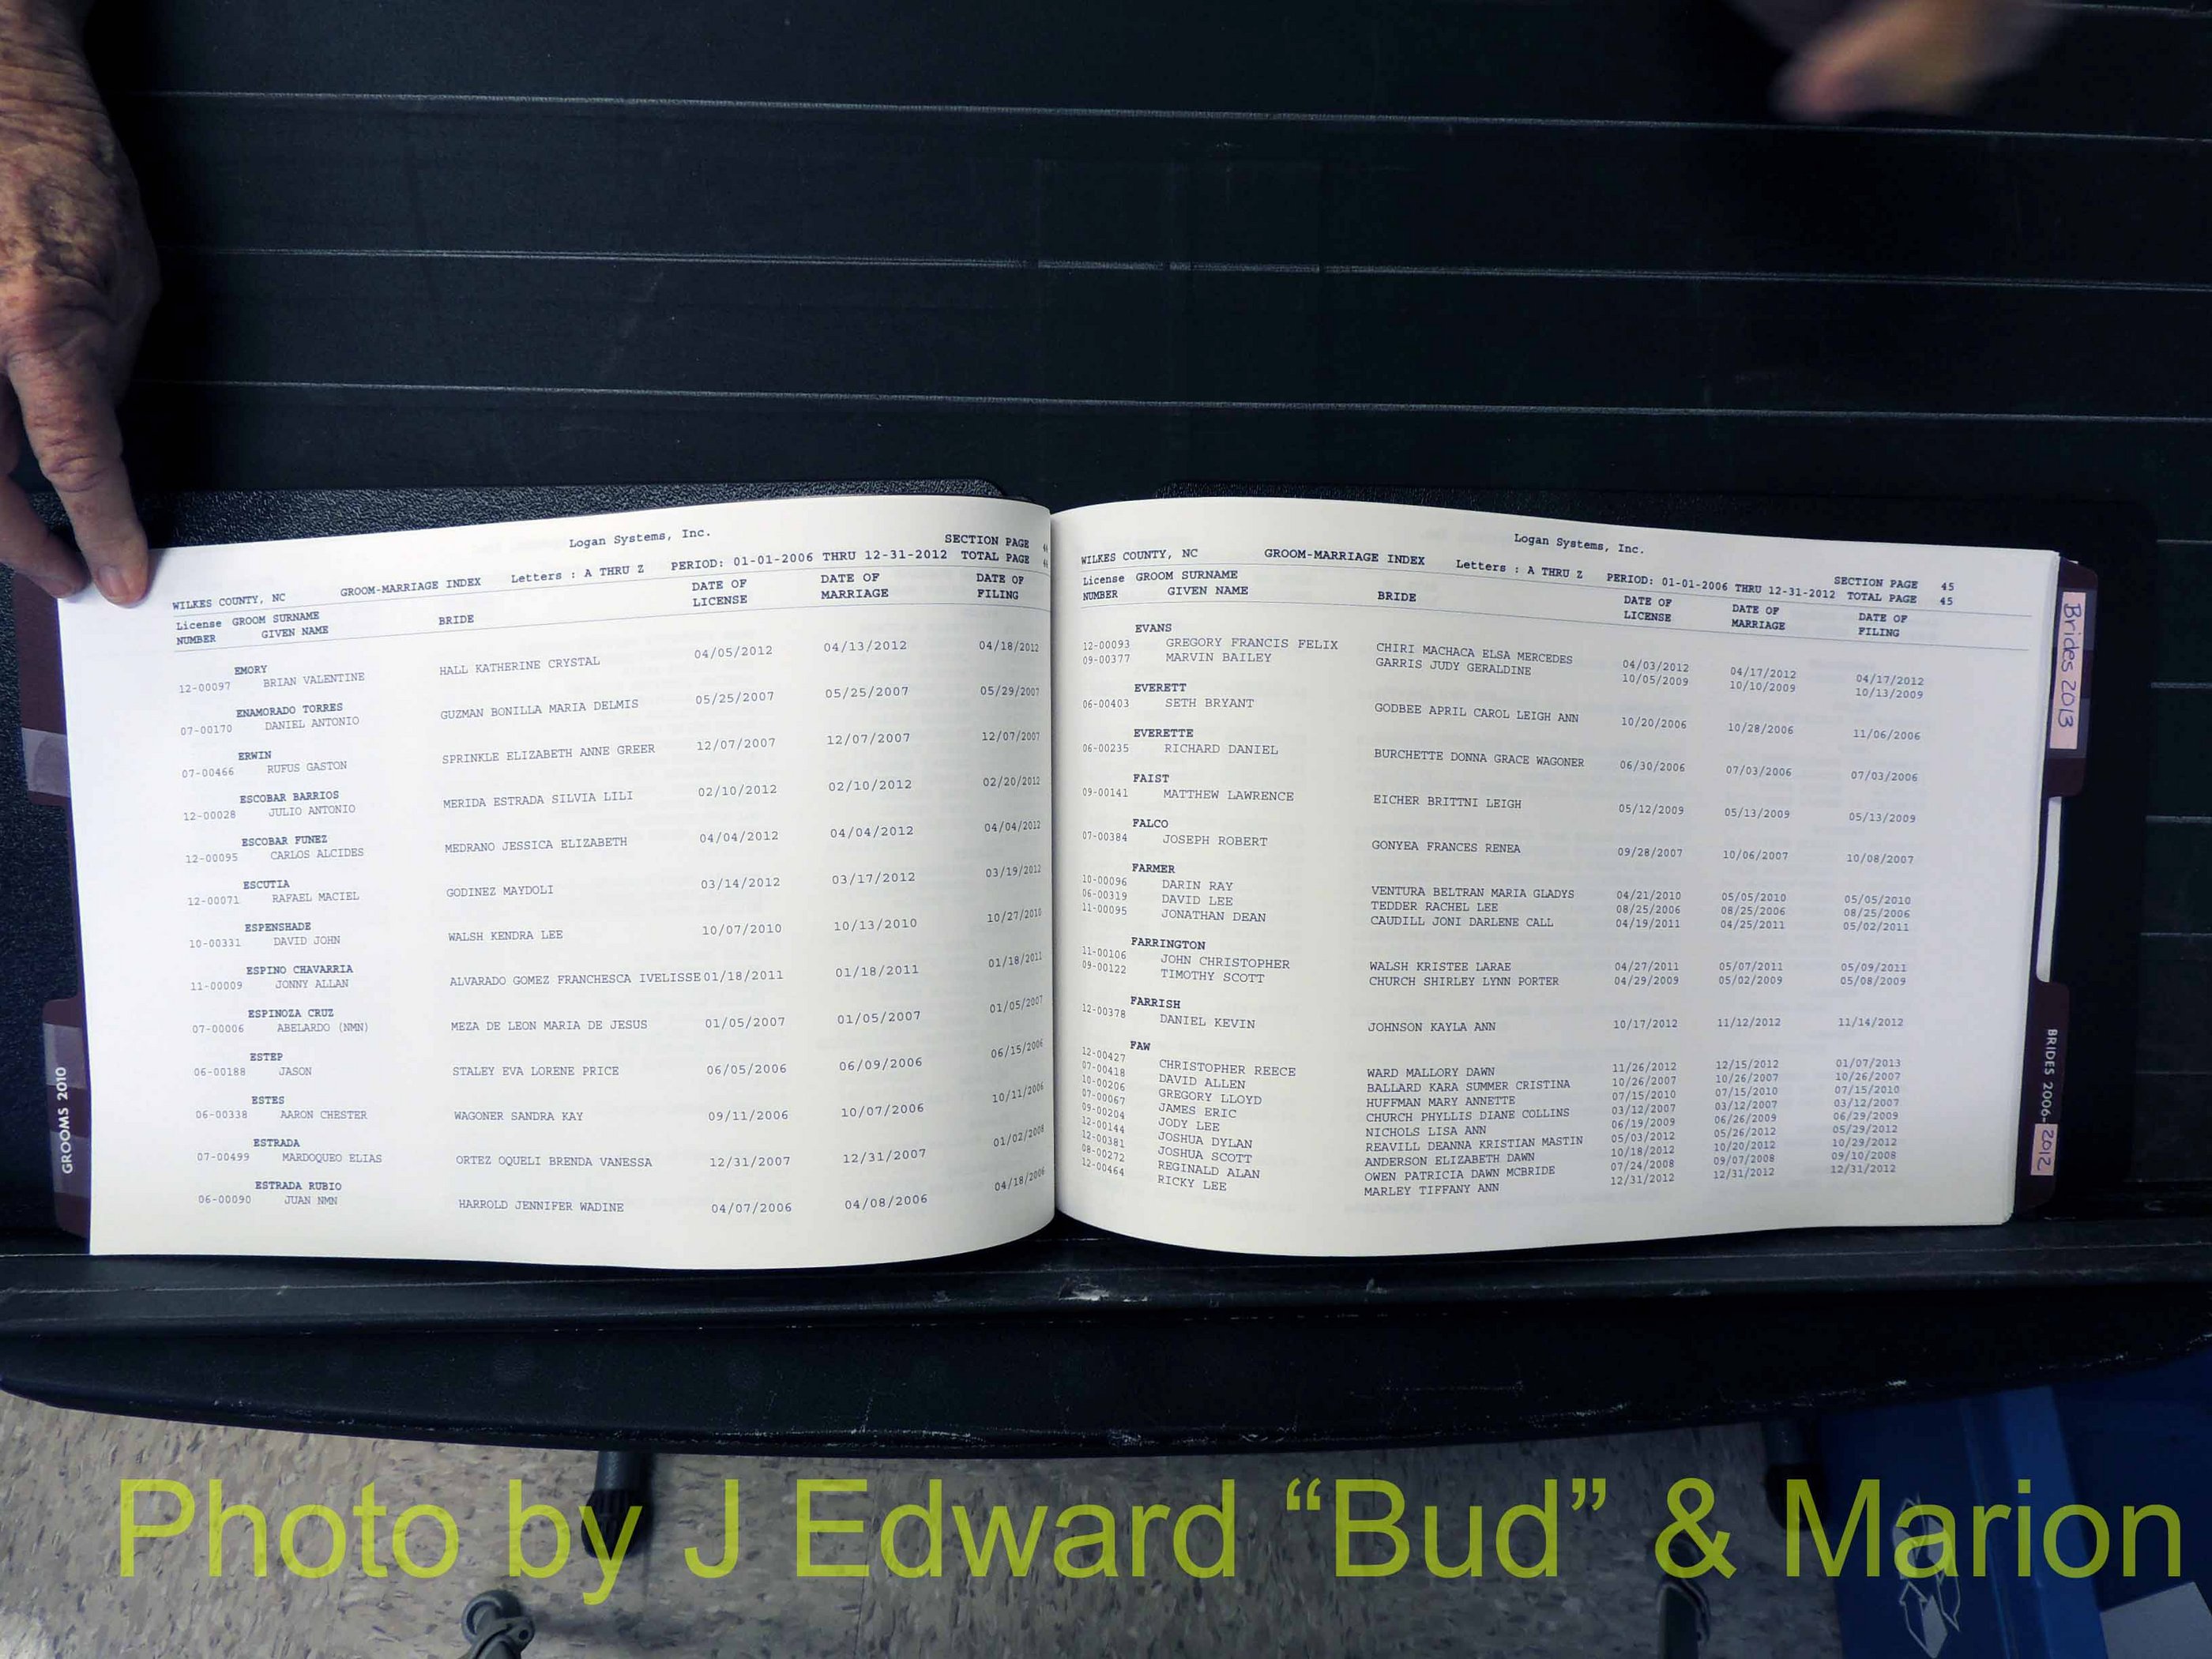 Logan Systems, Inc.
SECTION PAGE
WILKES COUNTY, NC GROOM-MARRIAGE INDEX Letters : A THRU Z PERIOD: 01-01-2006 THRU 12-31-2012 TOTAL PAGE
License GROOM SURNAME DATE OF DATE OF DATE OF
NUMBER GIVEN NAME BRIDE LICENSE MARRIAGE FILING
EMORY
12-00097 BRIAN VALENTINE HALL KATHERINE CRYSTAL 04/05/2012 04/13/2012 04/18/2012
ENAMORADO TORRES
07-00170 DANIEL ANTONIO GUZMAN BONILLA MARIA DELMIS 05/25/2007 05/25/2007 05/29/2007
ERWIN
07-00466 RUFUS GASTON SPRINKLE ELIZABETH ANNE GREER 12/07/2007 12/07/2007 12/07/2007
ESCOBAR BARRIOS
12-00028 JULIO ANTONIO MERIDA ESTRADA SILVIA LILI 02/10/2012 02/10/2012 02/20/2012
ESCOBAR FUNEZ
12-00095 CARLOS ALCIDES MEDRANO JESSICA ELIZABETH 04/04/2012 04/04/2012 04/04/2012
ESCUTIA
12-00071 RAFAEL MACIEL GODINEZ MAYDOLI 03/14/2012 03/17/2012 03/19/2012
ESPENSHADE
10-00331 DAVID JOHN WALSH KENDRA LEE 10/07/2010 10/13/2010 10/27/2010
ESPINO CHAVARRIA
11-00009 JONNY ALLAN ALVARADO GOMEZ FRANCHESCA IVELISSE 01/18/2011 01/18/2011 01/18/2011
ESPINOZA CRUZ
07-00006 ABELARDO (NMN) MEZA DE LEON MARIA DE JESUS 01/05/2007 01/05/2007 01/05/2007
ESTEP
06-00188 JASON STALEY EVA LORENE PRICE 06/05/2006 06/09/2006 06/15/2006
ESTES
06-00338 AARON CHESTER WAGONER SANDRA KAY 09/11/2006 10/07/2006 10/11/2006
ESTRADA
07-00499 MARDOQUEO ELIAS ORTEZ OQUELI BRENDA VANESSA 12/31/2007 12/31/2007 01/02/2008
ESTRADA RUBIO
06-00090 JUAN NMN HARROLD JENNIFER WADINE 04/07/2006 04/08/2006 04/18/2006
GROOMS 2010
Logan Systems, Inc.
SECTION PAGE 45
WILKES COUNTY, NC GROOM-MARRIAGE INDEX Letters : A THRU Z PERIOD: 01-01-2006 THRU 12-31-2012 TOTAL PAGE 45
License GROOM SURNAME DATE OF DATE OF DATE OF
NUMBER GIVEN NAME BRIDE LICENSE MARRIAGE FILING
EVANS
12-00093 GREGORY FRANCIS FELIX CHIRI MACHACA ELSA MERCEDES 04/03/2012 04/17/2012 04/17/2012
09-00377 MARVIN BAILEY GARRIS JUDY GERALDINE 10/05/2009 10/10/2009 10/13/2009
EVERETT
06-00403 SETH BRYANT GODBEE APRIL CAROL LEIGH ANN 10/20/2006 10/28/2006 11/06/2006
EVERETTE
06-00235 RICHARD DANIEL BURCHETTE DONNA GRACE WAGONER 06/30/2006 07/03/2006 07/03/2006
FAIST
09-00141 MATTHEW LAWRENCE EICHER BRITTNI LEIGH 05/12/2009 05/13/2009 05/13/2009
FALCO
07-00384 JOSEPH ROBERT GONYEA FRANCES RENEA 09/28/2007 10/06/2007 10/08/2007
FARMER
10-00096 DARIN RAY VENTURA BELTRAN MARIA GLADYS 04/21/2010 05/05/2010 05/05/2010
06-00319 DAVID LEE TEDDER RACHEL LEE 08/25/2006 08/25/2006 08/25/2006
11-00095 JONATHAN DEAN CAUDILL JONI DARLENE CALL 04/19/2011 04/25/2011 05/02/2011
FARRINGTON
11-00106 JOHN CHRISTOPHER WALSH KRISTEE LARAE 04/27/2011 05/07/2011 05/09/2011
09-00122 TIMOTHY SCOTT CHURCH SHIRLEY LYNN PORTER 04/29/2009 05/02/2009 05/08/2009
FARRISH
12-00378 DANIEL KEVIN JOHNSON KAYLA ANN 10/17/2012 11/12/2012 11/14/2012
FAW
12-00427 CHRISTOPHER REECE WARD MALLORY DAWN 11/26/2012 12/15/2012 01/07/2013
07-00418 DAVID ALLEN BALLARD KARA SUMMER CRISTINA 10/26/2007 10/26/2007 10/26/2007
10-00206 GREGORY LLOYD HUFFMAN MARY ANNETTE 07/15/2010 07/15/2010 07/15/2010
07-00067 JAMES ERIC CHURCH PHYLLIS DIANE COLLINS 03/12/2007 03/12/2007 03/12/2007
09-00204 JODY LEE NICHOLS LISA ANN 06/19/2009 06/26/2009 06/29/2009
12-00144 JOSHUA DYLAN REAVILL DEANNA KRISTIAN MASTIN 05/03/2012 05/26/2012 05/29/2012
12-00381 JOSHUA SCOTT ANDERSON ELIZABETH DAWN 10/18/2012 10/20/2012 10/29/2012
08-00272 REGINALD ALAN OWEN PATRICIA DAWN MCBRIDE 07/24/2008 09/07/2008 09/10/2008
12-00464 RICKY LEE MARLEY TIFFANY ANN 12/31/2012 12/31/2012 12/31/2012
Brides 2013
BRIDES 2006-2012
Photo by J Edward “Bud” & Marion